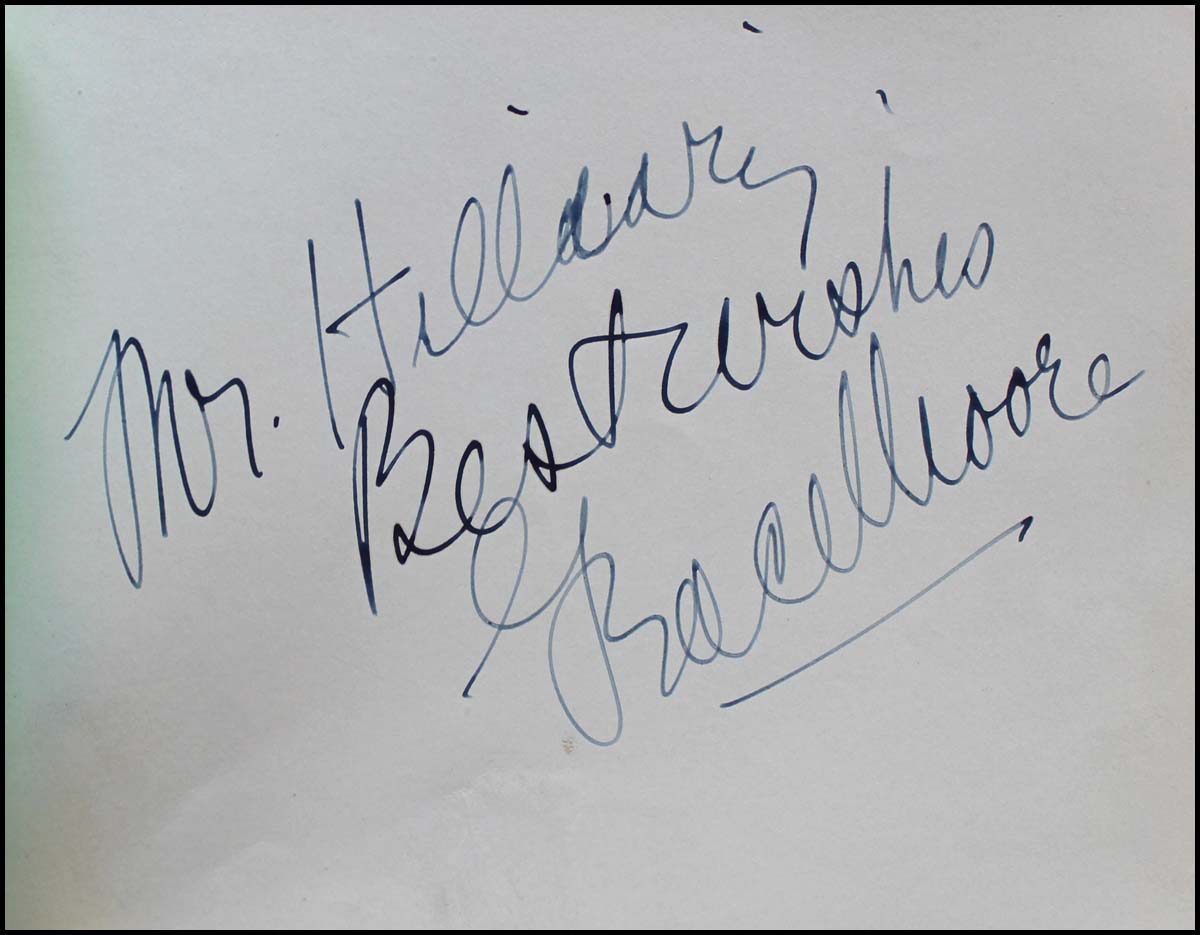 Mr.
Best wishes
Grace Moore